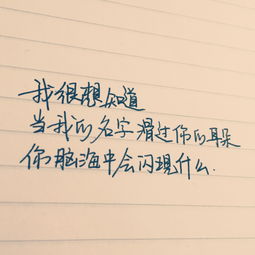 我很想知道
当我的名字滑过你的耳朵
你脑海中会闪现什么.